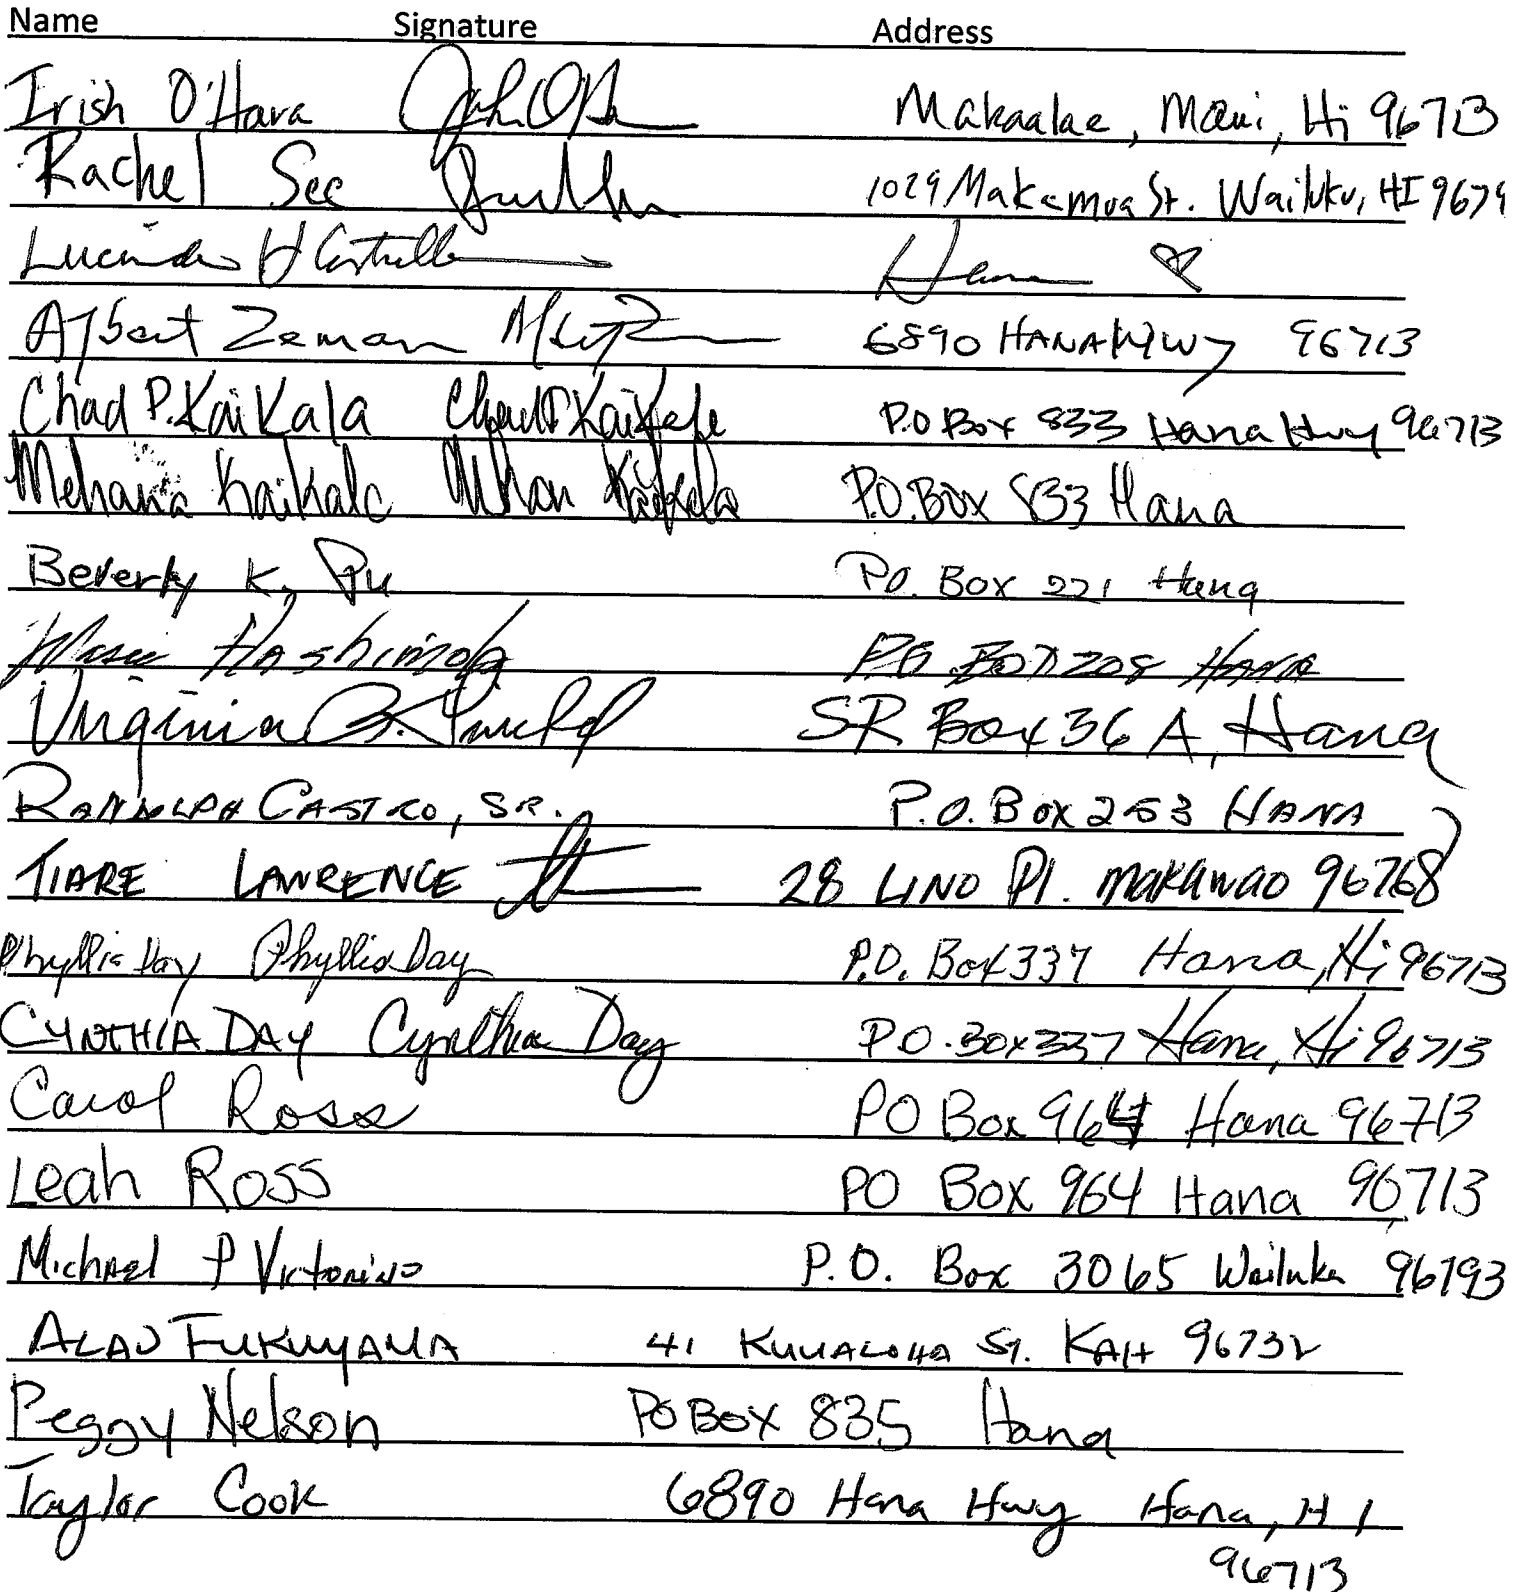 Name Signature Address
Irish O'Hara Makaalae, Maui, Hi 96713
Rachel See 1029 Makamua St. Wailuku, HI 9679
Lucinda H Hana
Albert Zeman 6890 HANA HWY 96713
Chad P. Kaikala Chad P Kaikala P.O Box 833 Hana Hwy 96713
Mehana Kaikala Kaikala P.O. Box 833 Hana
Beverly K. Pu P.O. Box 221 Hana
Hashimoto PO Box 208 HANA
Virginia SR Box 36 A, Hana
RANDOLPH CASTRO, SR. P.O. Box 253 HANA
TIARE LAWRENCE 28 LINO Pl. makawao 96768
Phyllis Day Phyllis Day P.O. Box 337 Hana, Hi 96713
CYNTHIA DAY Cynthia Day P.O. Box 337 Hana, Hi 96713
Carol Ross PO Box 964 Hana 96713
Leah Ross PO Box 964 Hana 96713
Michael P Victorino P.O. Box 3065 Wailuku 96793
ALAN FUKUYAMA 41 St. KAH 96732
Peggy Nelson PO Box 835 Hana
Taylor Cook 6890 Hana Hwy Hana, HI
96713